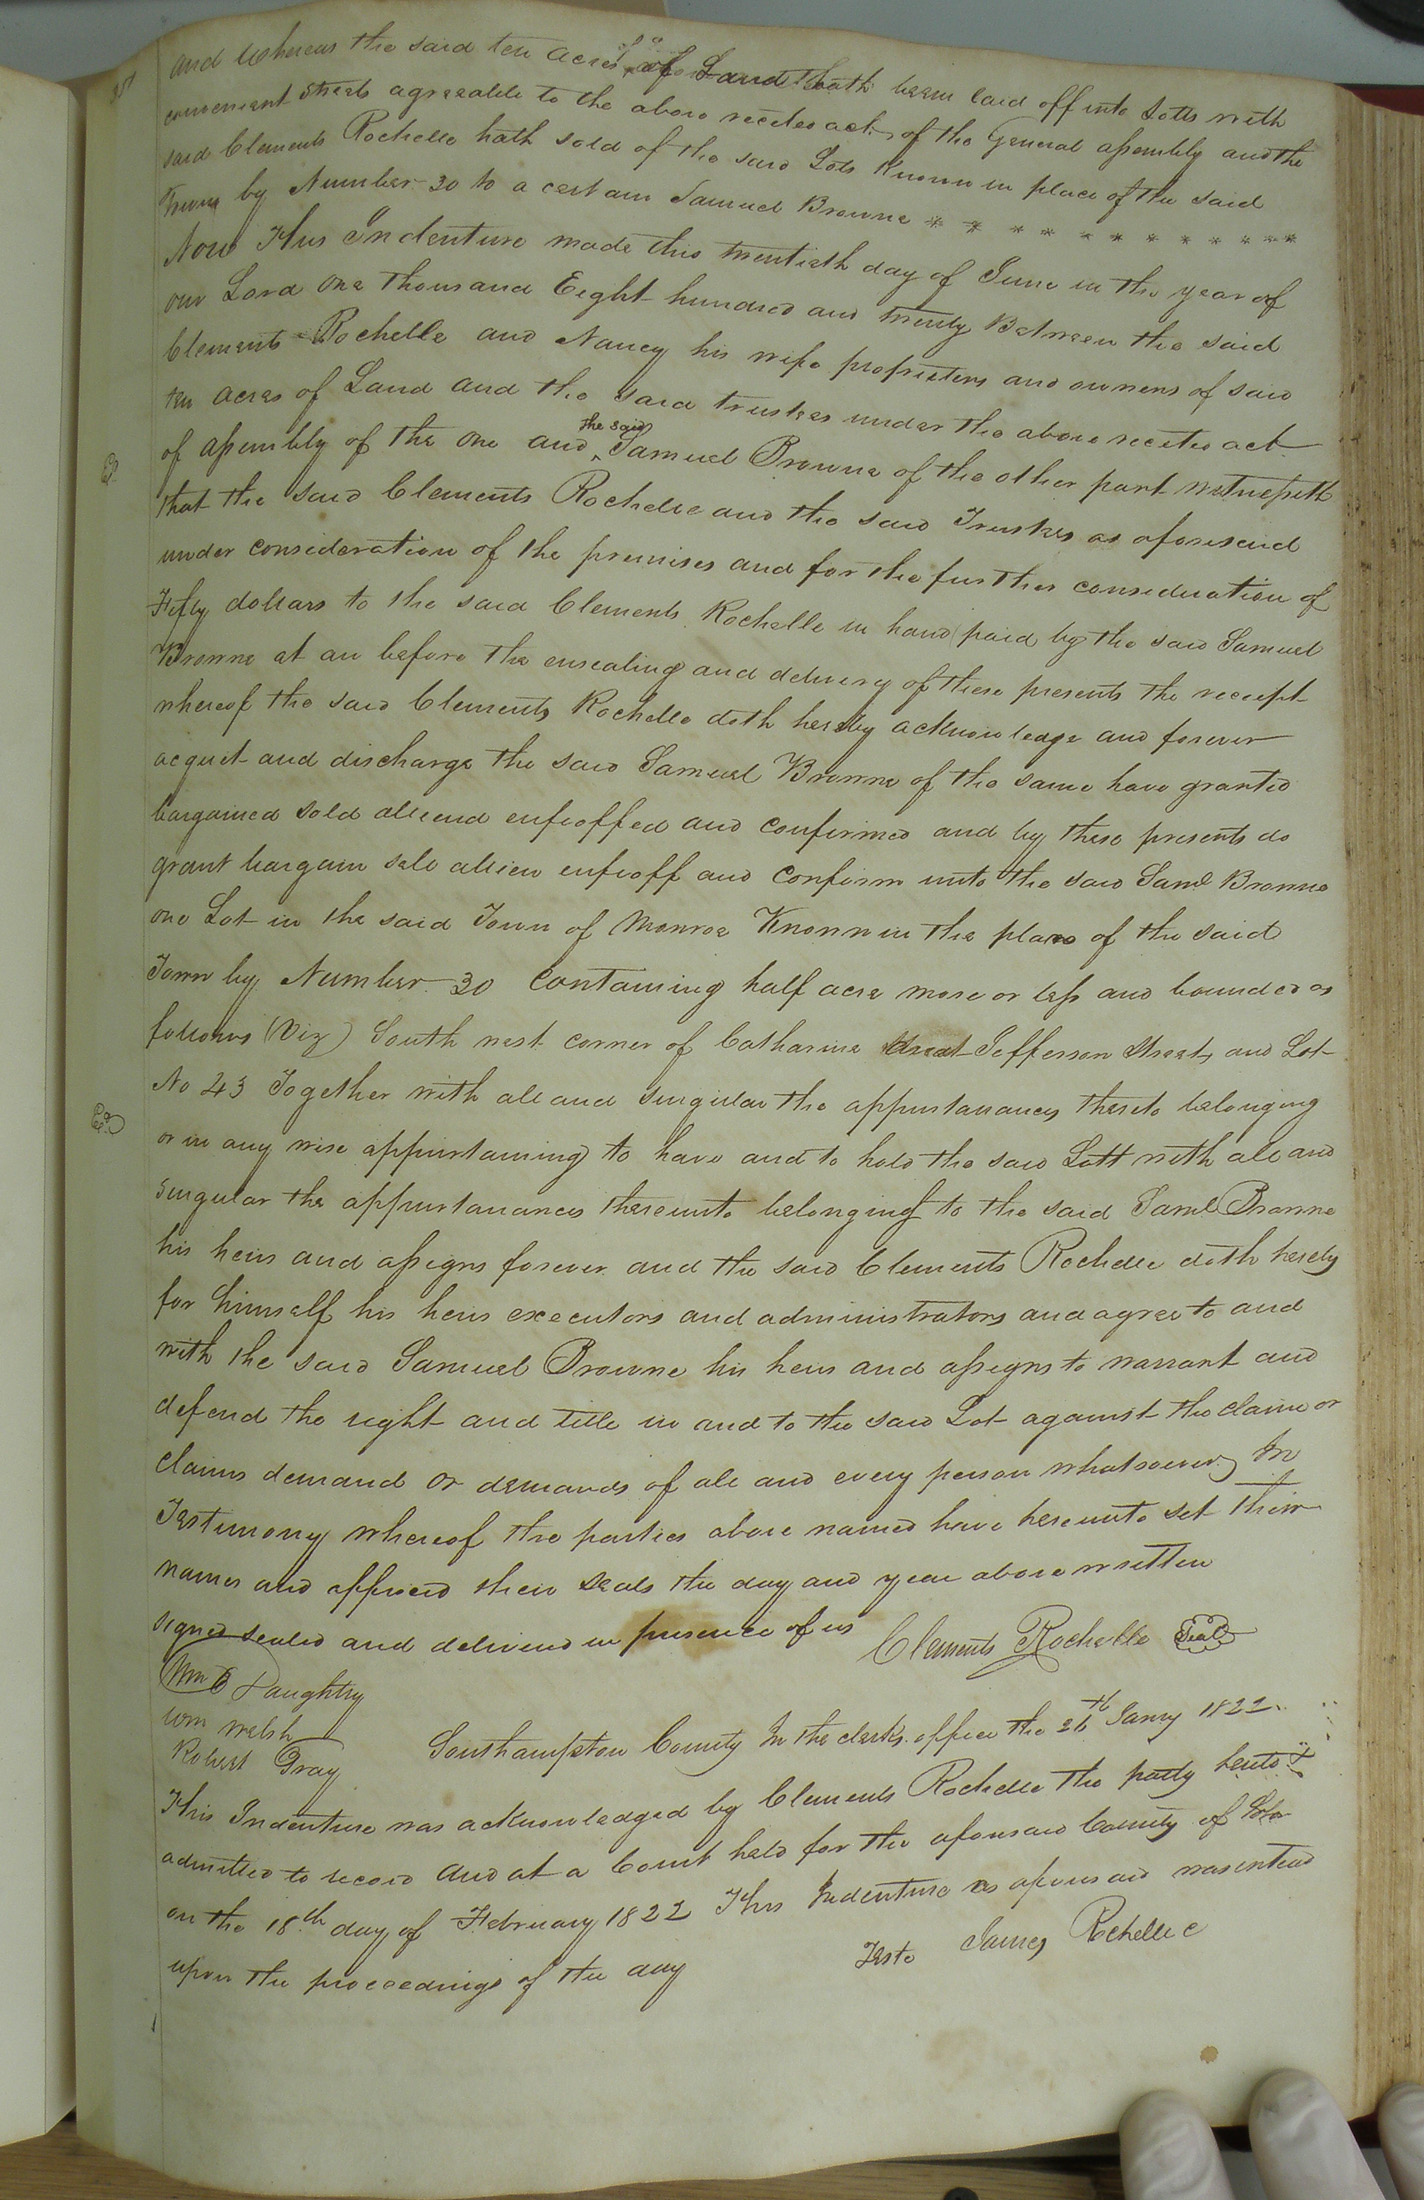 and whereas the said ten acres of Land hath been laid off into Lotts with
convenient streets agreeable to the above recited act of the General assembly and the
said Clements Rochelle hath sold of the said Lots Known in place of the said
Town by Number 30 to a certain Samuel Browne * * * * * * * * * * * *
Now This Indenture made this twentieth day of June in the year of
our Lord one thousand Eight hundred and twenty Between the said
Clements Rochelle and Nancy his wife proprietors and owners of said
ten acres of Land and the said trustees under the above recited act
of assembly of the one and the said Samuel Browne of the other part witnesseth
that the said Clements Rochelle and the said Trustees as aforesaid
under consideration of the premises and for the further consideration of
Fifty dollars to the said Clements Rochelle in hand paid by the said Samuel
Browne at an before the ensealing and delivery of these presents the receipt
whereof the said Clements Rochelle doth hereby acknowledge and forever
acquit and discharge the said Samuel Browne of the same have granted
bargained sold aliend enfeoffed and confirmed and by these presents do
grant bargain sell alien enfeoff and confirm unto the said Saml Browne
one Lot in the said Town of Monroe Known in the place of the said
Town by Number 30 containing half acre more or less and bounded as
follows (Viz) South west corner of Catharine Street Jefferson Street and Lot
No 43 Together with all and singular the appurtanances thereto belonging
or in any wise appurtaining to have and to hold the said Lott with all and
singular the appurtanances thereunto belonging to the said Saml Browne
his heirs and assigns forever and the said Clements Rochelle doth hereby
for himself his heirs executors and administrators and agree to and
with the said Samuel Browne his heirs and assigns to warrant and
defend the right and title in and to the said Lot against the claim or
claims demand or demands of all and every person whatsoever In
Testimony whereof the parties above named have hereunto set their
names and affixed their seals the day and year above written
signed sealed and delivered in presence of us
Clements Rochelle Seal
Wm B Daughtry
Wm Welsh
Robert Gray
Southampton County In the clerks office the 26th Janry 1822
This Indenture was acknowledged by Clements Rochelle the party hereto &
admitted to record and at a Court held for the aforesaid County of
on the 18th day of February 1822 This Indenture as aforesaid was entered
upon the proceedings of the day
Teste James Rochelle C